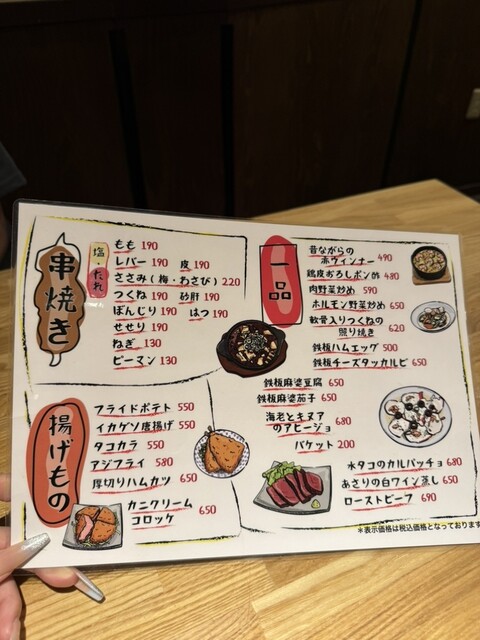 串焼き
塩・たれ
もも 190
レバー 190 皮 190
ささみ(梅・わさび) 220
つくね 190 砂肝 190
ぼんじり 190 はつ 190
せせり 190
ねぎ 130
ピーマン 130
揚げもの
フライドポテト 550
イカゲソ唐揚げ 550
タコカラ 550
アジフライ 580
厚切りハムカツ 650
カニクリーム
コロッケ 650
一品
昔ながらの
赤ウィンナー 490
鶏皮おろしポン酢 480
肉野菜炒め 590
ホルモン野菜炒め 650
軟骨入りつくねの
照り焼き 620
鉄板ハムエッグ 500
鉄板チーズタッカルビ 650
鉄板麻婆豆腐 650
鉄板麻婆茄子 650
海老とキヌア
のアヒージョ 680
バケット 200
水タコのカルパッチョ 680
あさりの白ワイン蒸し 650
ローストビーフ 690
*表示価格は税込価格となっております